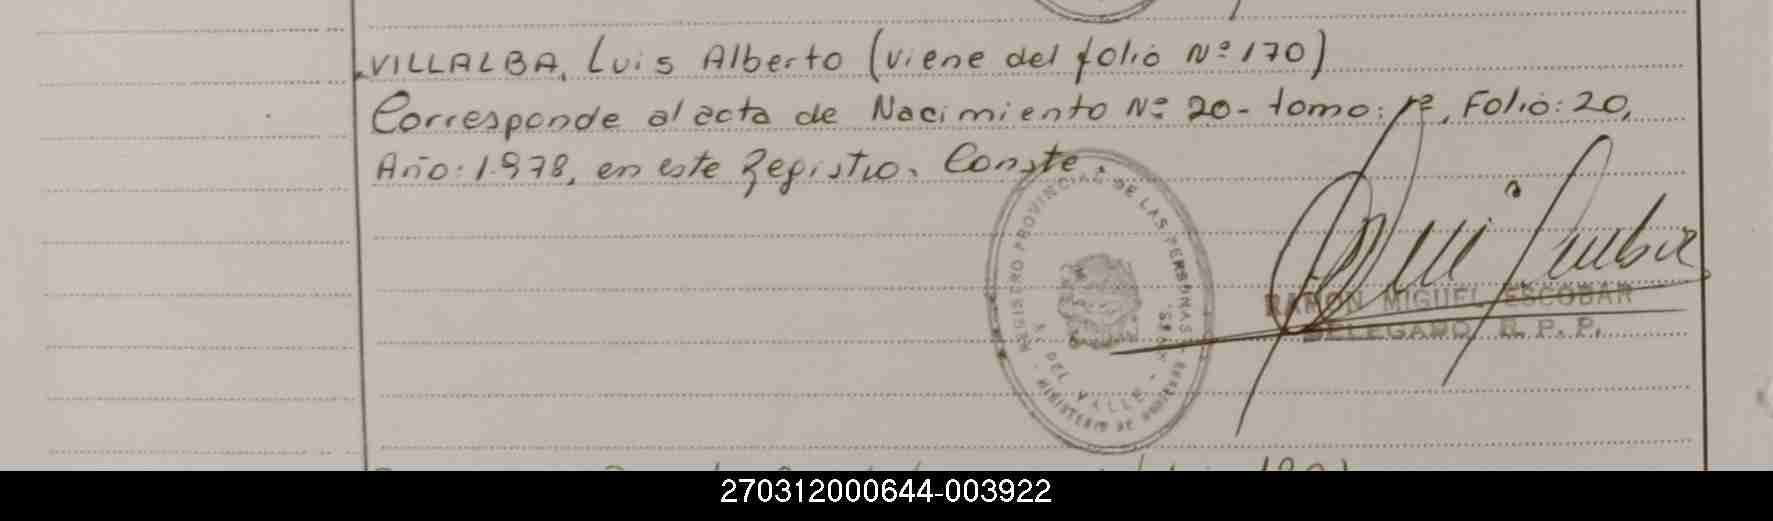 VILLALBA, Luis Alberto (viene del folio Nº 170)
Corresponde al acta de Nacimiento Nº 20 - tomo: 1º, Folio: 20,
Año: 1.978, en este Registro. Conste.
REGISTRO PROVINCIAL DE LAS PERSONAS
DEL VALLE
MINISTERIO DE
RAMON MIGUEL ESCOBAR
DELEGADO R. P. P.
270312000644-003922